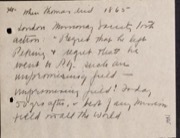 when Thomas died 1865
London Missionary Society took
action - "Regret that he left
Peking & regret that he
went to such an
unpromising field -
unpromising field! Today,
after, best
field in all the World